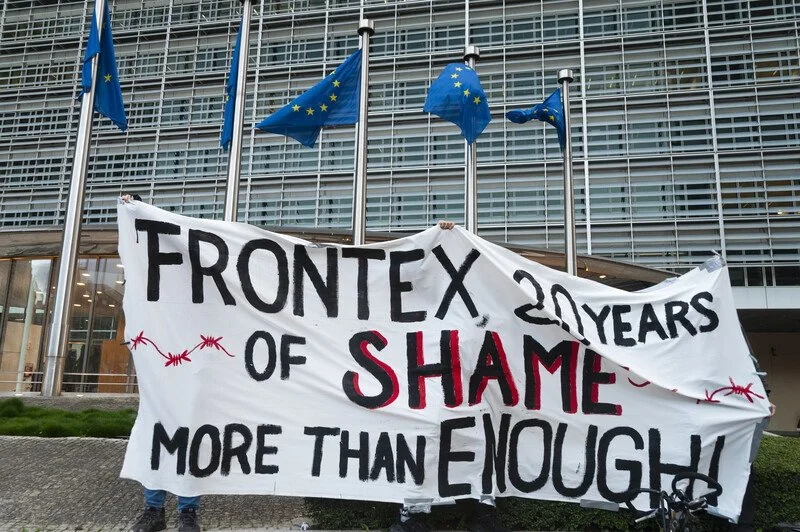 FRONTEX 20 YEARS
OF SHAME
MORE THAN ENOUGH!